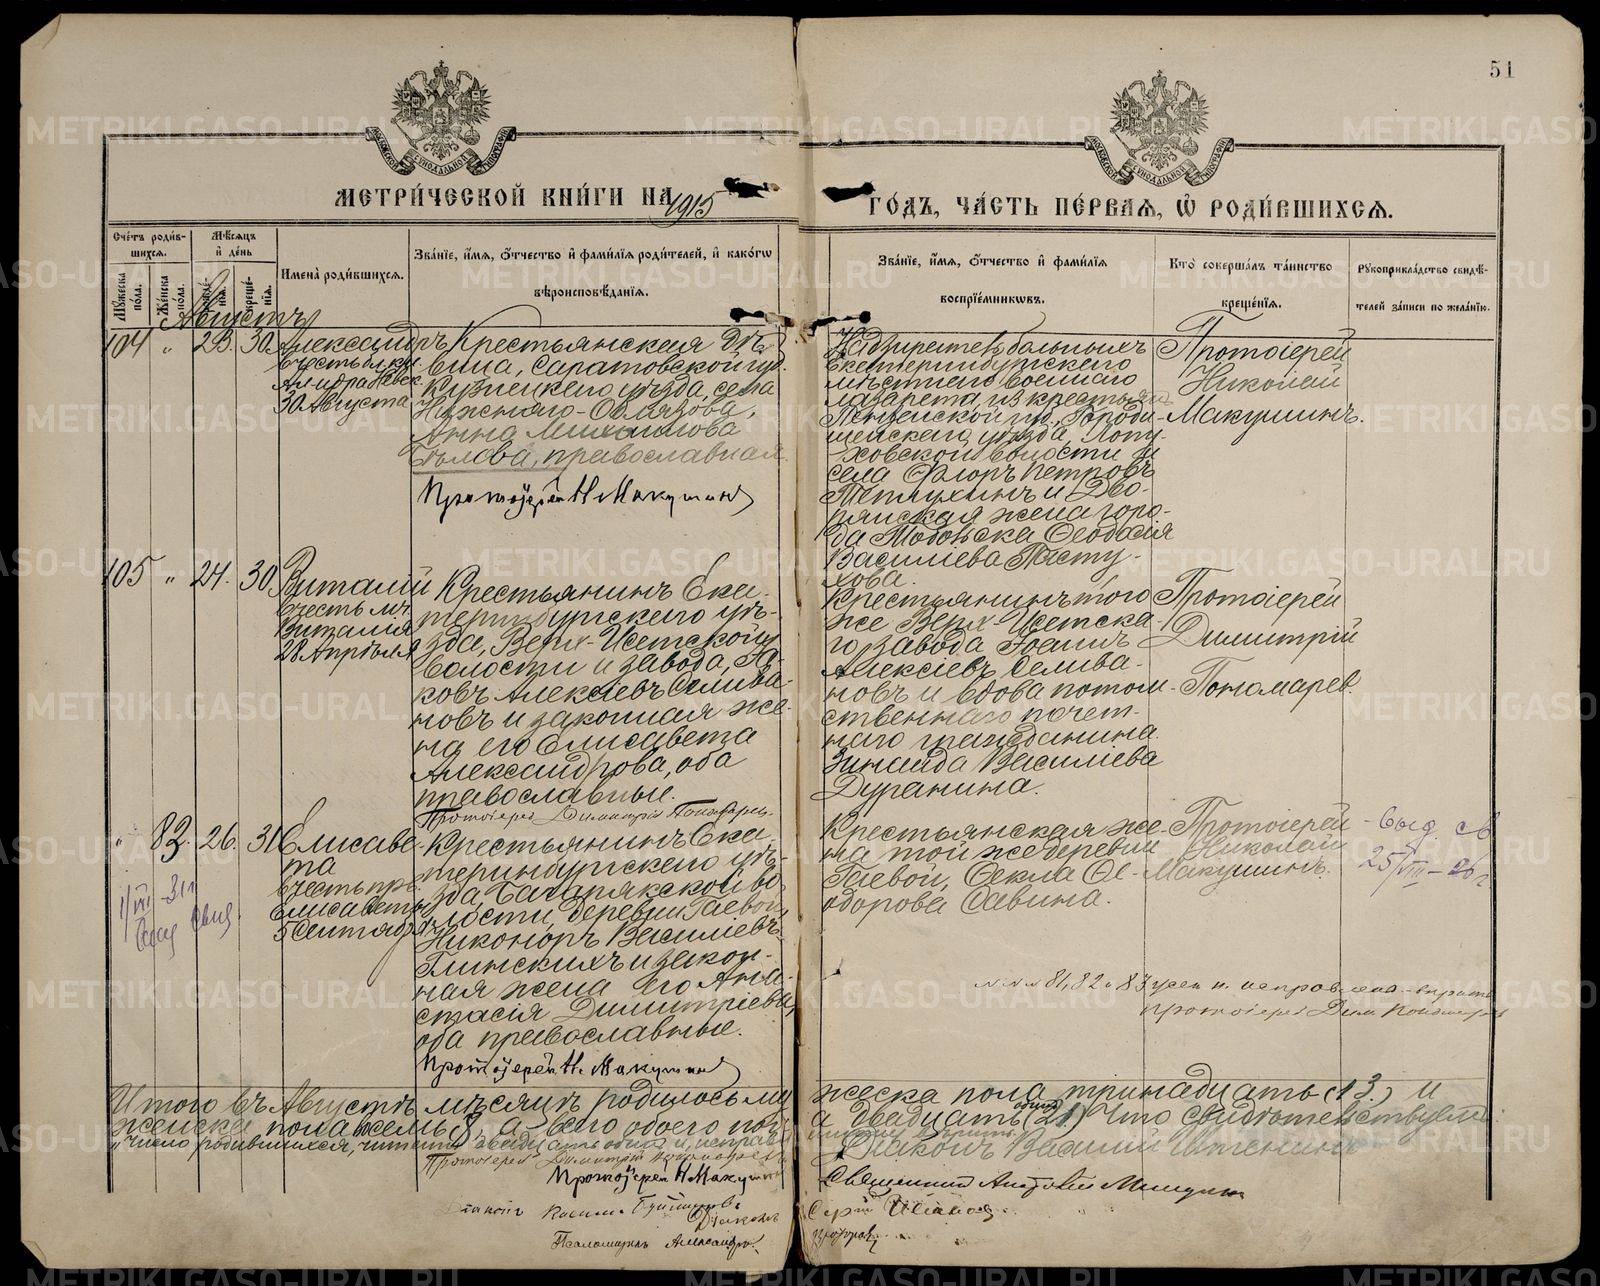 51
МЕТРИ́ЧЕСКОЙ КНИ́ГИ НА 1915
ГО́ДЪ, ЧА́СТЬ ПЕ́РВАЯ, Ѡ РОДИ́ВШИХСЯ.
Сче́тъ роди́вшихся.
Му́жеска по́ла.
Же́нска по́ла.
Мѣ́сяцъ и де́нь
рожде́нія.
креще́нія.
Имена̀ роди́вшихся.
Зва́ніе, и́мя, о́тчество и фами́лія роди́телей, и како́гѡ
вѣроисповѣ́данія.
Зва́ніе, и́мя, о́тчество и фами́лія
воспріе́мникѡвъ.
Кто̀ соверша́лъ та́инство
креще́нія.
Рꙋкоприкла́дство свидѣ́-
телей за́писи по жела́нію.
Августъ
104 " 23. 30.
Александръ
въ честь бл. кн.
30 Августа
Крестьянская дѣ-
вица, Саратовской губ.
Кузнецкаго уѣзда, села
Нижняго-Облязова,
Анна Михаилова
Бѣлова, православная.
Протоіерей Н. Макушинъ
Надзиратель больныхъ
Екатеринбургскаго
мѣстнаго военнаго
лазарета, из крестьянъ
Пензенской губ., Городи-
щенскаго уѣзда, Лопу-
ховской волости и
села Флоръ Петровъ
и Дво-
рянская жена горо-
да Тобольска Ѳеодосія
Василіева Пасту-
хова.
Протоіерей
Николай
Макушинъ.
105 " 24. 30.
Виталій
въ честь мч.
Виталія
28 Апрѣля
Крестьянинъ Ека-
теринбургскаго уѣ-
зда, Верх-Исетской
волости и завода, Іа-
ковъ Алексіевъ Селива-
новъ и законная же-
на его Елисавета
Александрова, оба
православные.
Протоіерей Димитрій Пономаревъ
Крестьянинъ того
же Верх-Исетска-
го завода Іоаннъ
Алексіевъ Селива-
новъ и вдова потом-
ственнаго почет-
наго гражданина
Зинаида Василіева
Дуранина.
Протоіерей
Димитрій
Пономарев.
" 83. 26. 31
Елисаве-
та
въ честь пр.
Елисаветы
5 Сентября
Крестьянинъ Ека-
теринбургскаго уѣ-
зда, Багарякской во-
лости, деревни Гаевой
Никоноръ Василіевъ
Глинскихъ и закон-
ная жена его Ана-
стасія Димитріева,
оба православные.
Протоіерей Н. Макушинъ
Крестьянская же-
на той же деревни
Гаевой, Ѳекла Ѳе-
одорова Савина.
Протоіерей
Николай
Макушинъ.
Выд. св
25/VIII - 26 г
1/VII - 31 г
выд свид
№№ 81, 82 и 83
протоіерей Дим. Пономарев
Итого въ Августѣ мѣсяцѣ родилось му
жеска пола тринадцать (13.) и
женска пола восемь (8), а всего обоего пол
а двадцать один (21) Что свидѣтельствуемъ
число родившихся, читать двадцать одинъ и, исправл
Протоіерей Димитрій Пономарев
Протоіерей Н. Макушинъ
Діаконъ Василій
Священникъ
Діаконъ
Псаломщикъ Александр